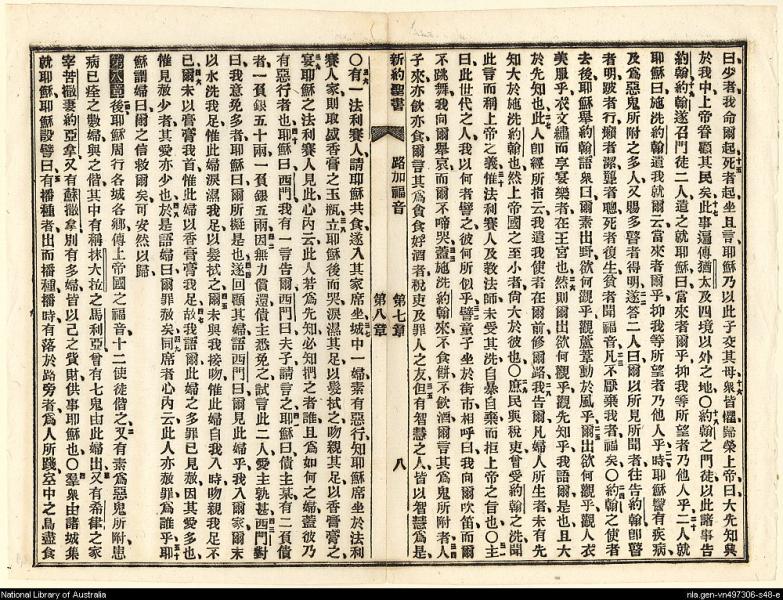 曰少者我命爾起死者起坐且言耶穌乃以此子交其母衆皆懼歸榮上帝曰大先知興
於我中上帝眷顧其民矣此事遍傳猶太及四境以外之地○約翰之門徒以此諸事告
約翰約翰遂召門徒二人遣之就耶穌曰當來者爾乎抑我等所望者乃他人乎二人就
耶穌曰施洗約翰遣我就爾云當來者爾乎抑我等所望者乃他人乎時耶穌醫有疾病
及爲惡鬼所附之多人又賜多瞽者得明遂答二人曰爾以所見所聞者往告約翰即瞽
者明跛者行癩者潔聾者聰死者復生貧者聞福音凡不厭棄我者福矣○約翰之使者
去後耶穌舉約翰語衆曰爾素出野欲何觀乎觀蘆葦動於風乎爾出欲何觀乎觀人衣
美服乎衣文繡而享宴樂者在王宮也然則爾出欲何觀乎觀先知乎我語爾是也且大
於先知也此人即經所指云我遣我使者在爾前修爾路我告爾凡婦人所生者未有先
知大於施洗約翰也然上帝國之至小者尙大於彼也○庶民與稅吏曾受約翰之洗聞
此言而稱上帝之義惟法利賽人及教法師未受其洗自暴自棄而拒上帝之旨也○主
曰此世代之人我以何者譬之彼何所似乎譬童子坐於街市相呼曰我向爾吹笛而爾
不跳舞我向爾舉哀而爾不啼哭蓋施洗約翰來不食餅不飲酒爾言其爲鬼所附者人
子來亦飲亦食爾言其爲貪食好酒者稅吏及罪人之友但有智慧之人皆以智慧爲是
新約聖書 路加福音 第七章 第八章 八
○有一法利賽人請耶穌共食遂入其家席坐城中一婦素有惡行知耶穌席坐於法利
賽人家則取盛香膏之玉瓶立耶穌後而哭淚濕其足以髮拭之吻親其足以香膏膏之
宴耶穌之法利賽人見此心內云此人若爲先知必知捫之者誰且爲如何之婦蓋彼乃
有惡行者也耶穌曰西門我有一言告爾西門曰夫子請言之耶穌曰債主某有二負債
者一負銀五十兩一負銀五兩因無力償還債主悉免之試言此二人愛主孰甚西門對
曰我意免多者耶穌曰爾所擬是也遂回顧其婦語西門曰爾見此婦乎我入爾家爾未
以水洗我足惟此婦淚濕我足以髮拭之爾未與我接吻惟此婦自我入時吻親我足不
已爾未以膏膏我首惟此婦以香膏膏我足故我語爾此婦之多罪已見赦因其愛多也
惟見赦少者其愛亦少也於是語婦曰爾罪赦矣同席者心內云此人亦赦罪爲誰乎耶
穌謂婦曰爾之信救爾矣可安然以歸
第八章後耶穌周行各城各鄉傳上帝國之福音十二使徒偕之又有素爲惡鬼所附患
病已痊之數婦與之偕其中有稱抹大拉之馬利亞曾有七鬼由此婦出又有希律之家
宰苦撒妻約亞拿又有蘇撒拿別有多婦皆以己之貲財供事耶穌也○羣衆由諸城集
就耶穌耶穌設譬曰有播種者出而播種播時有落於路旁者爲人所踐空中之鳥盡食
National Library of Australia
nla.gen-vn497306-s48-e